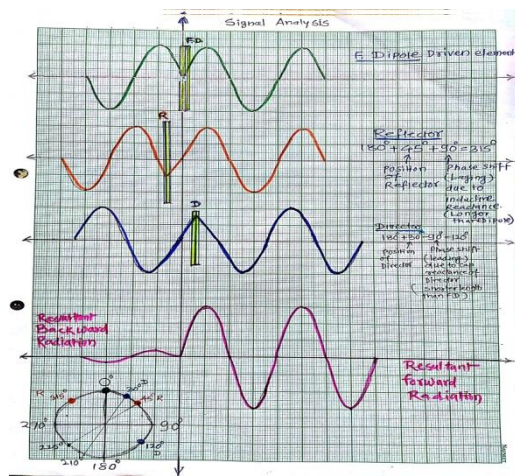 Signal Analysis
F.D
F. Dipole Driven element
R
Reflector
180°+45°+90°=315°
Position of Reflector
Phase shift (Laging) due to inductive Reactance. (Longer than Dipole)
D
Director
Position of Director
Phase shift (leading) due to cap reactance of Director (shorter length than FD)
Resultant Backward Radiation
Resultant forward Radiation
0°
R 315°
D
45° R
270°
90°
120° D
210°
180°